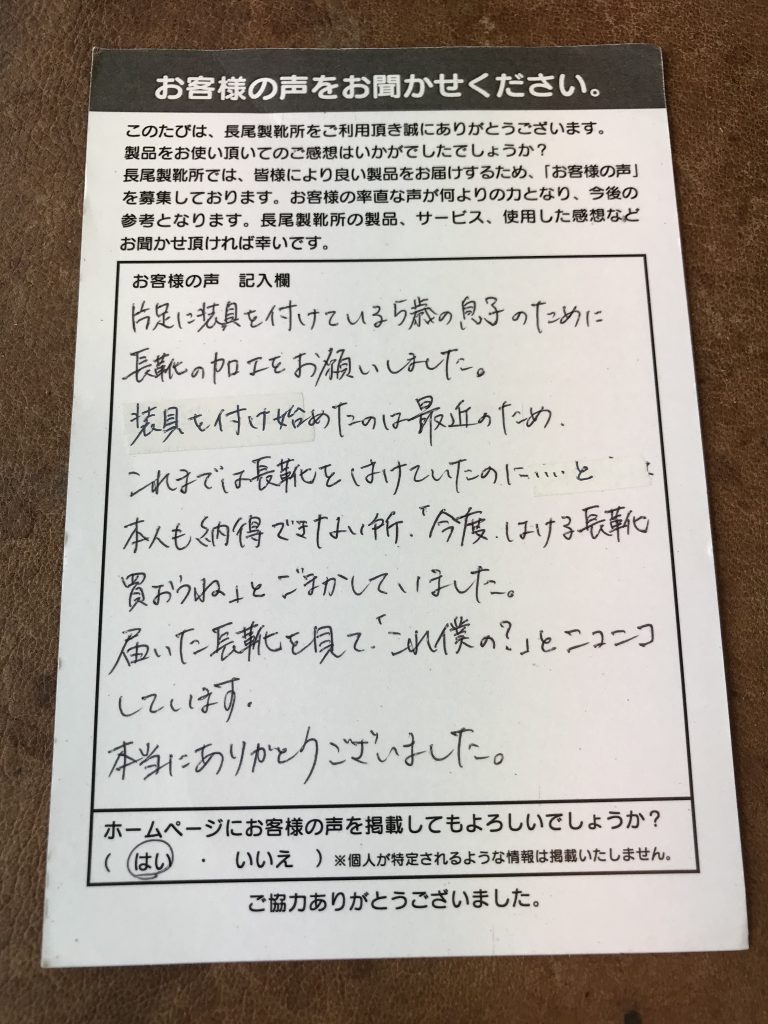 お客様の声をお聞かせください。
このたびは、長尾製靴所をご利用頂き誠にありがとうございます。
製品をお使い頂いてのご感想はいかがでしたでしょうか？
長尾製靴所では、皆様により良い製品をお届けするため、「お客様の声」
を募集しております。お客様の率直な声が何よりの力となり、今後の
参考となります。長尾製靴所の製品、サービス、使用した感想など
お聞かせ頂ければ幸いです。
お客様の声　記入欄
片足に装具を付けている5歳の息子のために
長靴の加工をお願いしました。
装具を付け始めたのは最近のため、
これまでは長靴をはけていたのに……と
本人も納得できない所、「今度、はける長靴
買おうね」とごまかしていました。
届いた長靴を見て、「これ僕の？」とニコニコ
しています。
本当にありがとうございました。
ホームページにお客様の声を掲載してもよろしいでしょうか？
（　はい　・　いいえ　）※個人が特定されるような情報は掲載いたしません。
ご協力ありがとうございました。